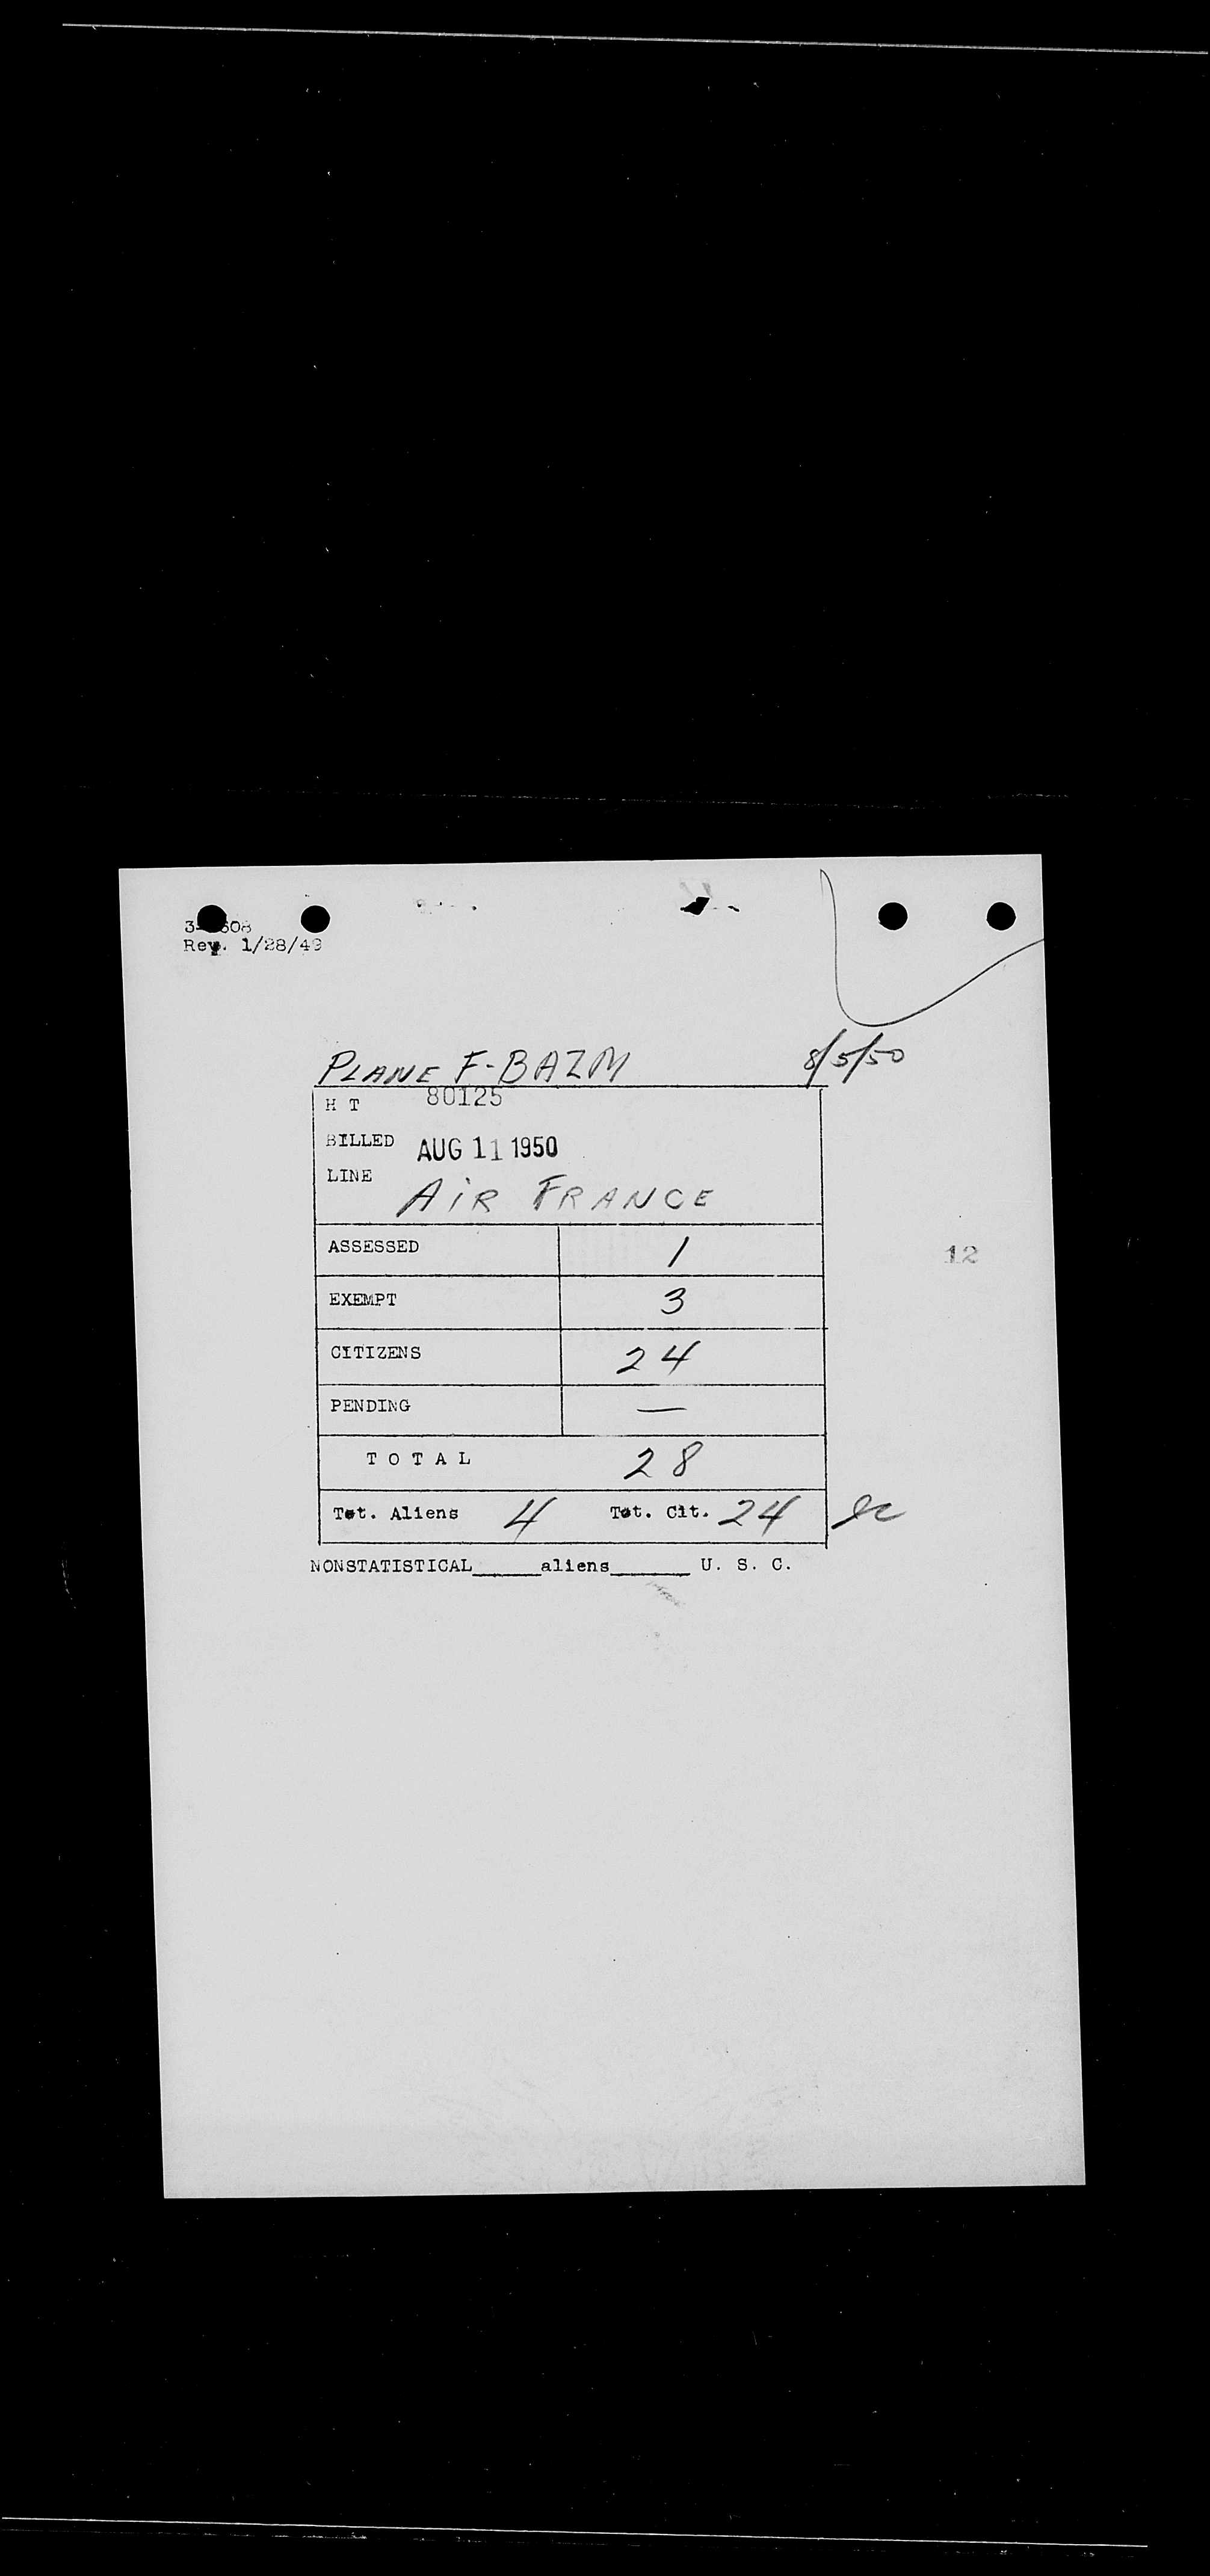 Rev. 1/28/49
PLANE F-BAZM 8/5/50
H T 80125
BILLED AUG 11 1950
LINE AIR FRANCE
ASSESSED 1
12
EXEMPT 3
CITIZENS 24
PENDING —
TOTAL 28
Tot. Aliens 4 Tot. Cit. 24
NONSTATISTICAL_____aliens______ U. S. C.